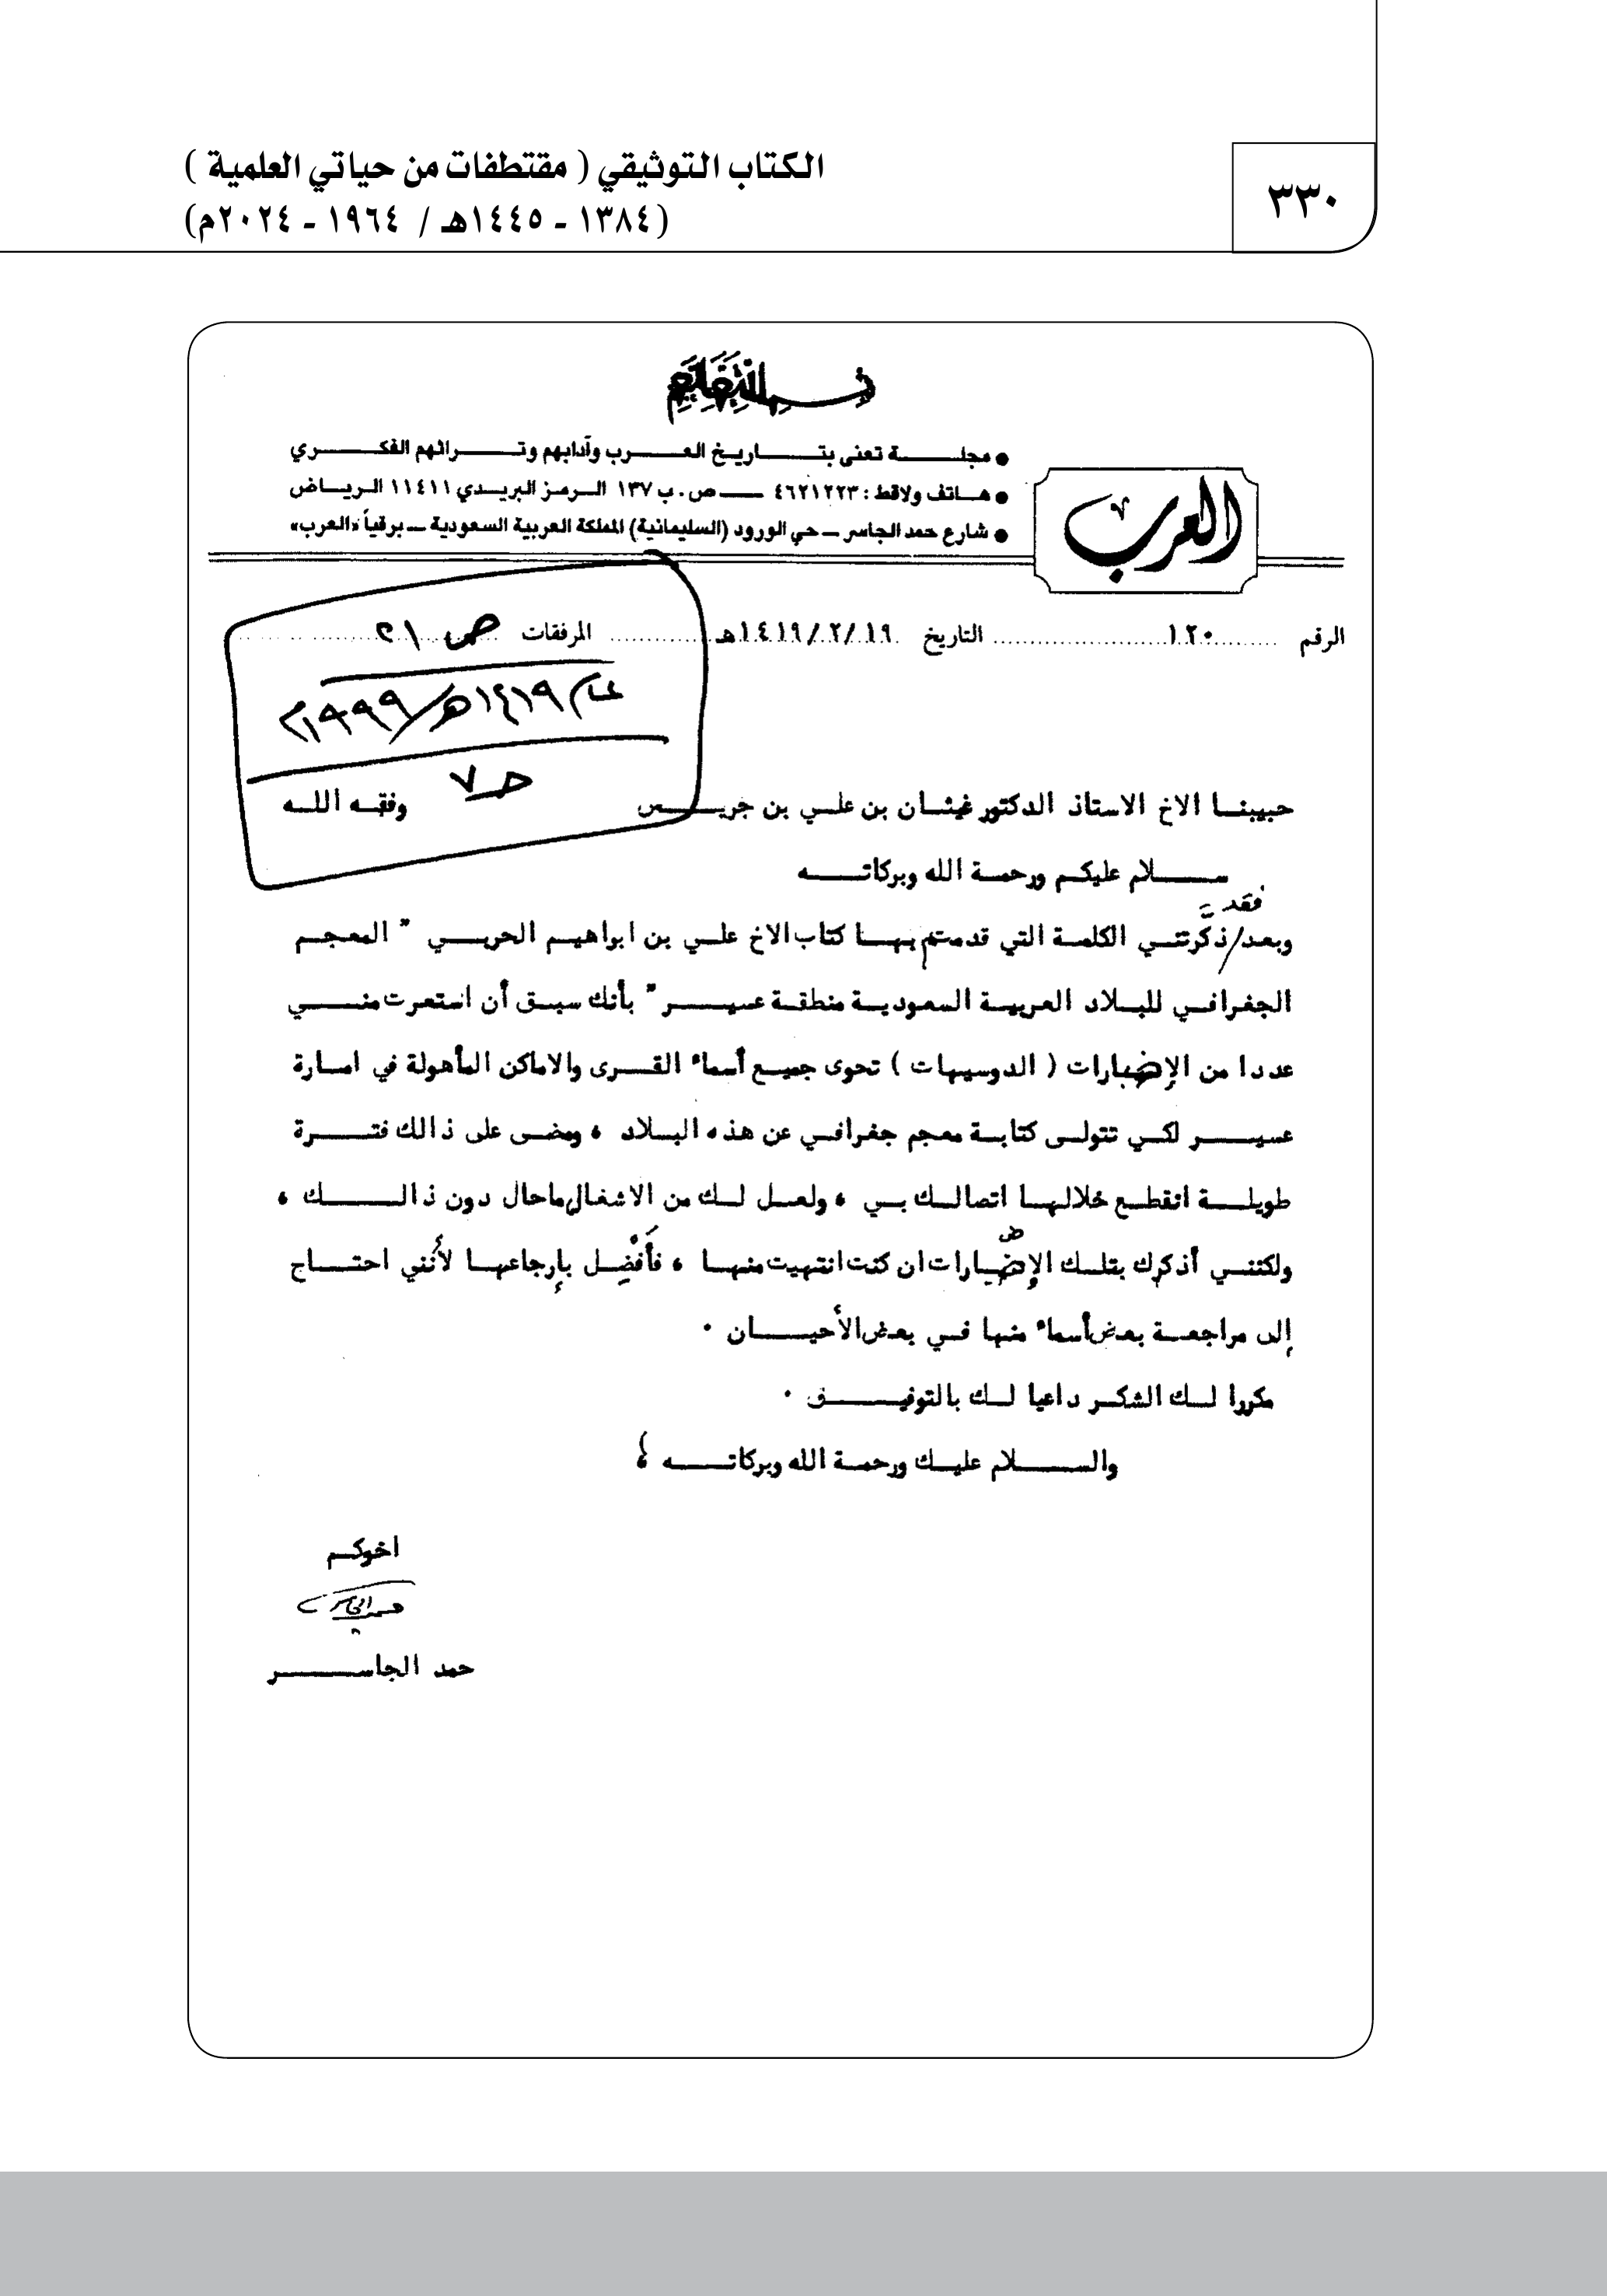 ٣٣٠
الكتاب التوثيقي ( مقتطفات من حياتي العلمية )
(١٣٨٤ - ١٤٤٥هـ / ١٩٦٤ - ٢٠٢٤م)
● مجلة تعنى بتاريخ العرب وآدابهم وتراثهم الفكري
● هاتف ولاقط : ٤٦٢١٢٢٣ — ص . ب ١٣٧ الرمز البريدي ١١٤١١ الرياض
● شارع حمد الجاسر – حي الورود (السليمانية) المملكة العربية السعودية – برقياً «العرب»
العرب
الرقم ١٢٠ التاريخ ١٤١٩/٢/١٩هـ المرفقات
عام ١٤١٩هـ/١٩٩٩م
حبيبنا الاخ الاستاذ الدكتور غيثان بن علي بن جريس وفقه الله
سلام عليكم ورحمة الله وبركاته
وبعد/ فقد ذكّرتني الكلمة التي قدمتم بها كتاب الاخ علي بن ابراهيم الحربي " المعجم
الجغرافي للبلاد العربية السعودية منطقة عسير " بأنك سبق أن استعرت مني
عددا من الإضبارات ( الدوسيهات ) تحوى جميع أسماء القرى والاماكن المأهولة في امارة
عسير لكي تتولى كتابة معجم جغرافي عن هذه البلاد ، ومضى على ذالك فترة
طويلة انقطع خلالها اتصالك بي ، ولعل لك من الاشغال ماحال دون ذالك ،
ولكنني أذكرك بتلك الإضبارات ان كنت انتهيت منها ، فأفضل بإرجاعها لأنني احتاج
إلى مراجعة بعض أسماء منها في بعض الأحيان .
مكررا لك الشكر داعيا لك بالتوفيق .
والسلام عليك ورحمة الله وبركاته ،
اخوكم
حمد الجاسر